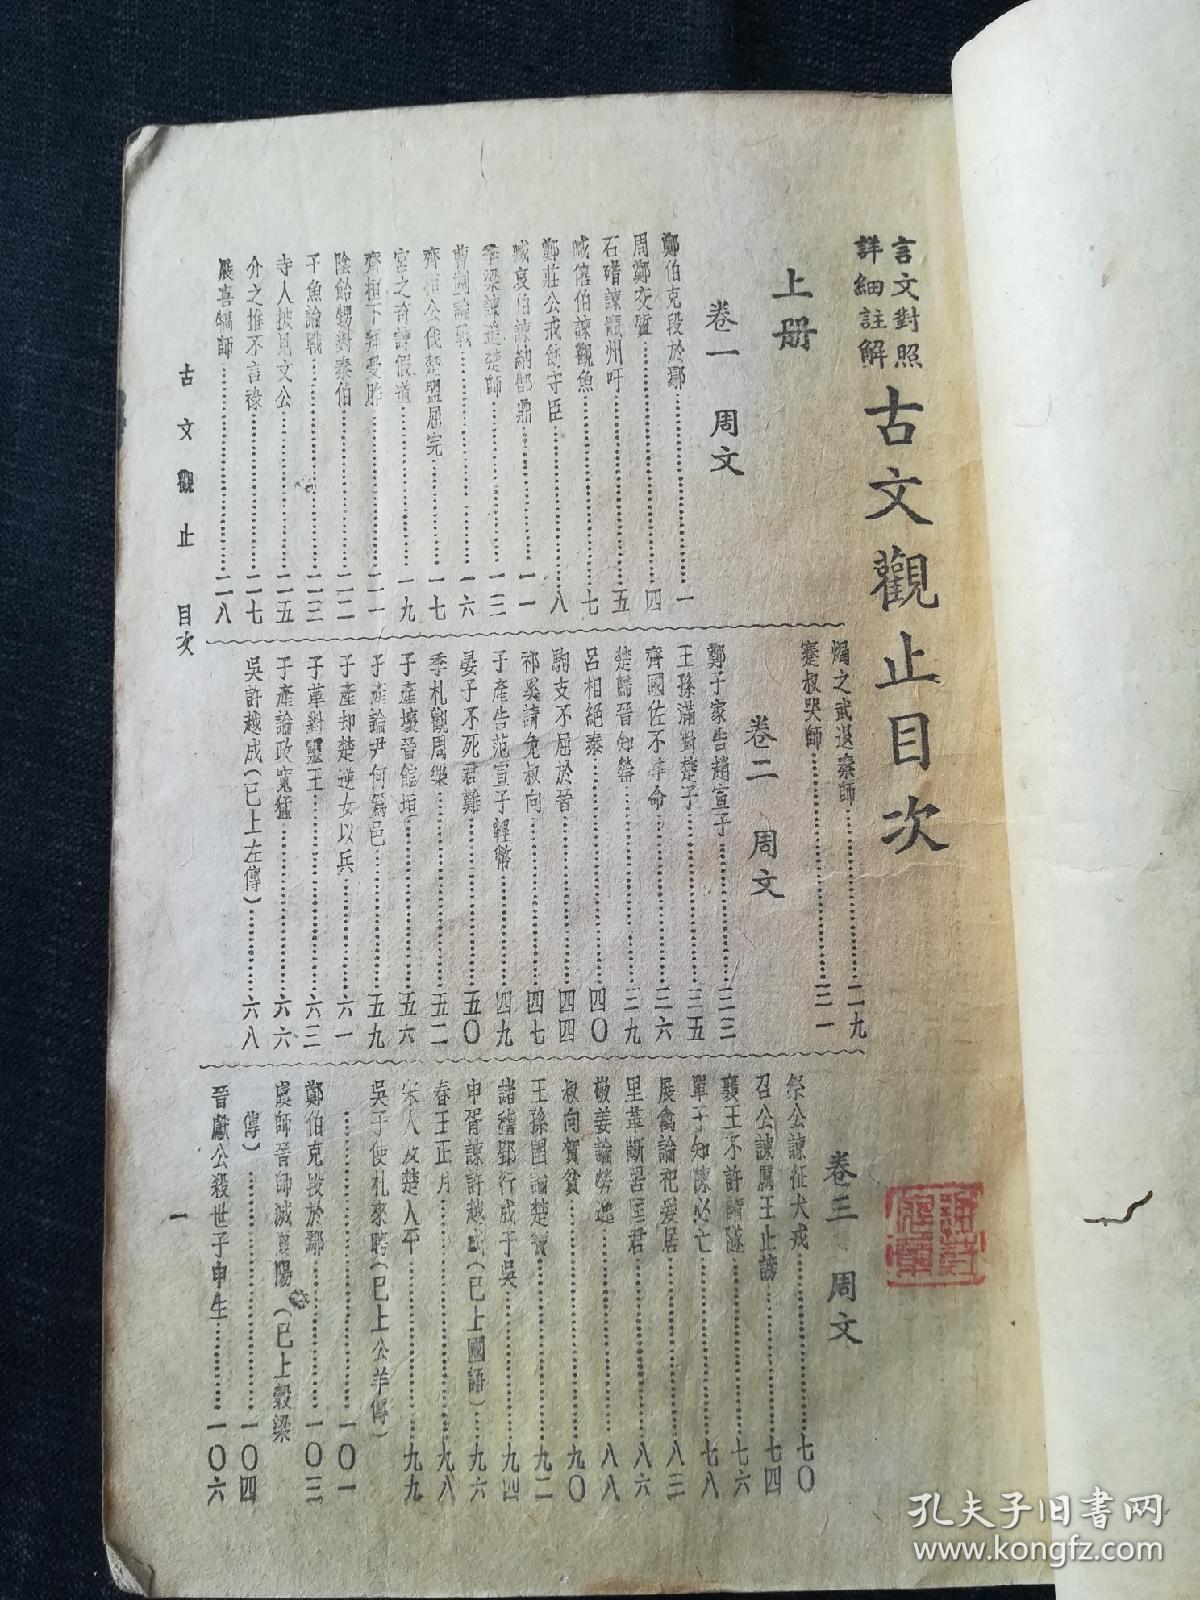 言文對照
詳細註解
古文觀止目次
上册
卷一 周文
鄭伯克段於鄢……一
周鄭交質……四
石碏諫寵州吁……五
臧僖伯諫觀魚……七
鄭莊公戒飭守臣……八
臧哀伯諫納郜鼎……一一
季梁諫追楚師……一三
曹劌論戰……一六
齊桓公伐楚盟屈完……一七
宮之奇諫假道……一九
齊桓下拜受胙……二一
陰飴甥對秦伯……二二
子魚論戰……二三
寺人披見文公……二五
介之推不言祿……二七
展喜犒師……二八
燭之武退秦師……二九
蹇叔哭師……三一
卷二 周文
鄭子家告趙宣子……三三
王孫滿對楚子……三五
齊國佐不辱命……三六
楚歸晉知罃……三九
呂相絕秦……四〇
駒支不屈於晉……四四
祁奚請免叔向……四七
子產告范宣子輕幣……四九
晏子不死君難……五〇
季札觀周樂……五二
子產壞晉館垣……五六
子產論尹何爲邑……五九
子產却楚逆女以兵……六一
子革對靈王……六三
子產論政寬猛……六六
吳許越成(已上左傳)……六八
卷三 周文
祭公諫征犬戎……七〇
召公諫厲王止謗……七四
襄王不許請隧……七六
單子知陳必亡……七八
展禽論祀爰居……八三
里革斷罟匡君……八六
敬姜論勞逸……八八
叔向賀貧……九〇
王孫圉論楚寶……九二
諸稽郢行成于吳……九四
申胥諫許越成(已上國語)……九六
春王正月……九八
宋人及楚人平……九九
吳子使札來聘(已上公羊傳)
……一〇一
鄭伯克段於鄢……一〇三
虞師晉師滅夏陽(已上穀梁
傳)……一〇四
晉獻公殺世子申生……一〇六
古文觀止 目次
一
孔夫子旧書网
www.kongfz.com